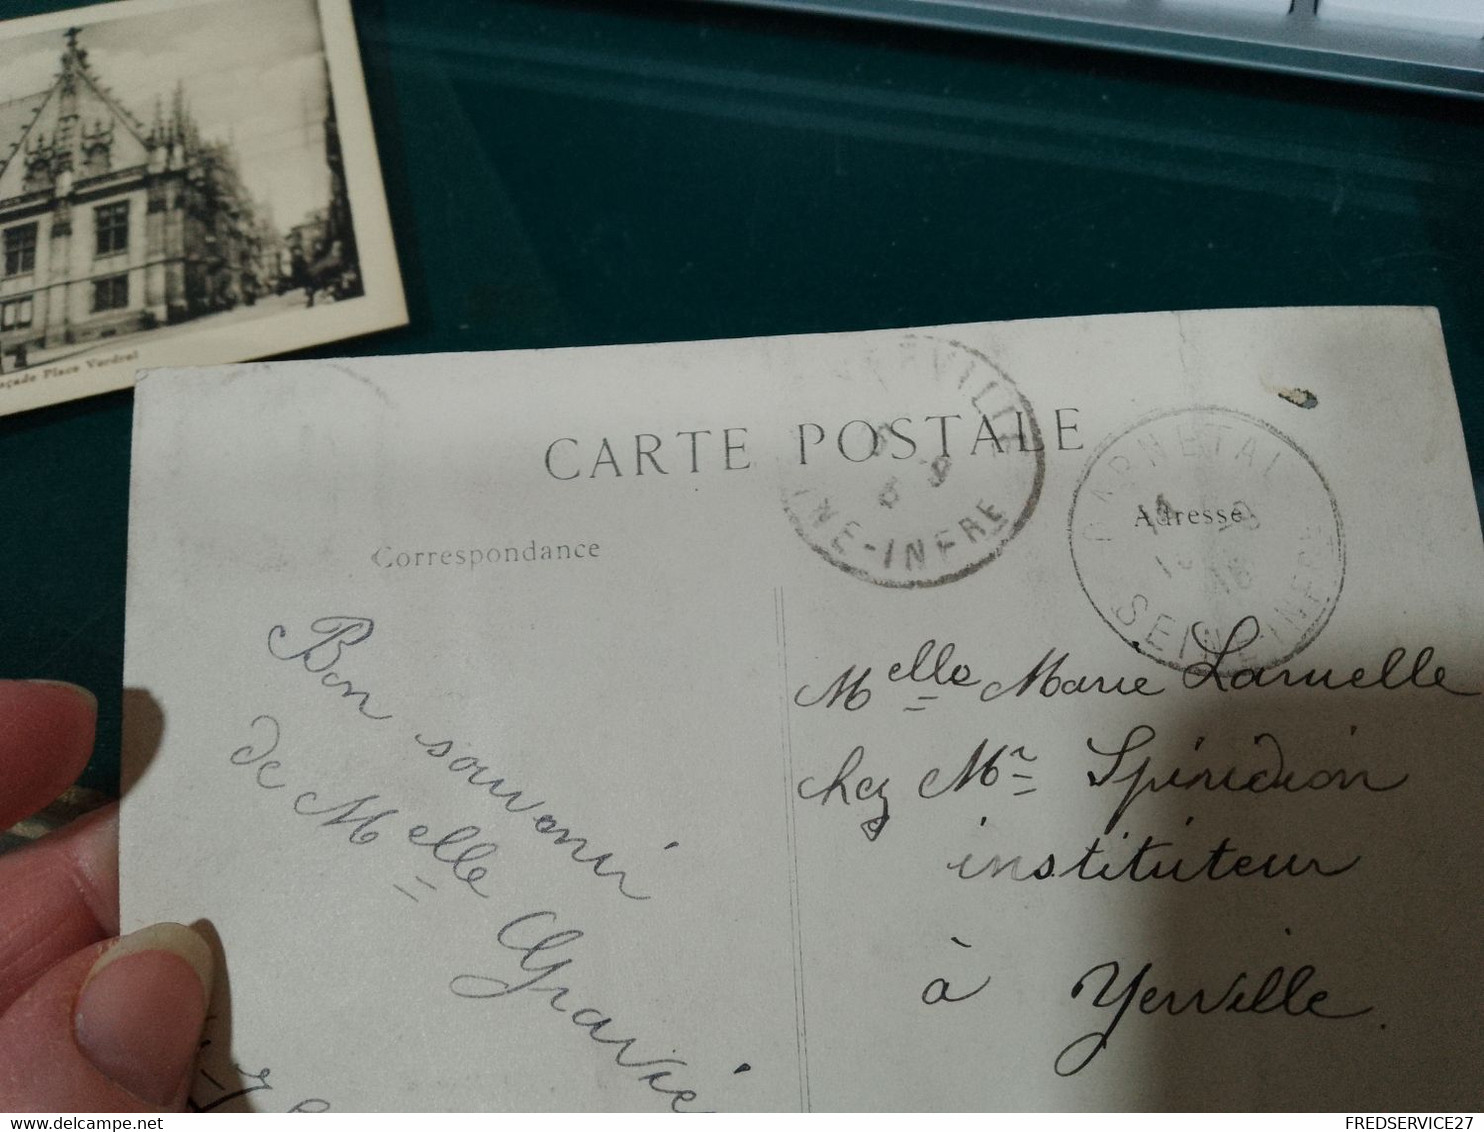 Place Verdrel
CARTE POSTALE
Correspondance
Adresse
DARNETAL
SEINE INFRE
INE-INFRE
Bon souvenir
de Melle Gravié
Melle Marie Laruelle
chez Mr Spiridion
instituteur
à Yerville.
FREDSERVICE27